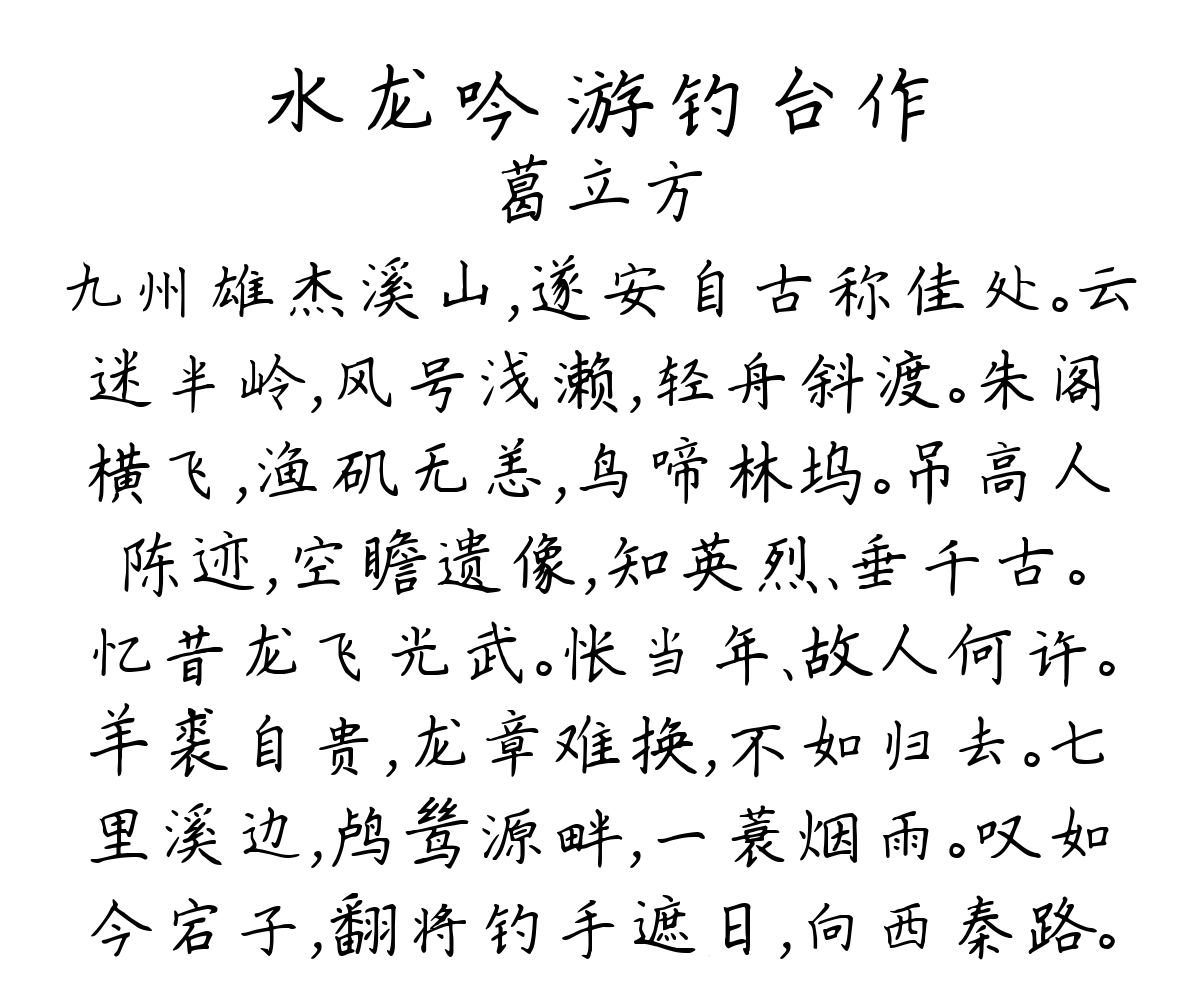 水龙吟 游钓台作
葛立方
九州雄杰溪山,遂安自古称佳处。云
迷半岭,风号浅濑,轻舟斜渡。朱阁
横飞,渔矶无恙,鸟啼林坞。吊高人
陈迹,空瞻遗像,知英烈、垂千古。
忆昔龙飞光武。怅当年、故人何许。
羊裘自贵,龙章难换,不如归去。七
里溪边,鸬鹚源畔,一蓑烟雨。叹如
今宕子,翻将钓手遮日,向西秦路。